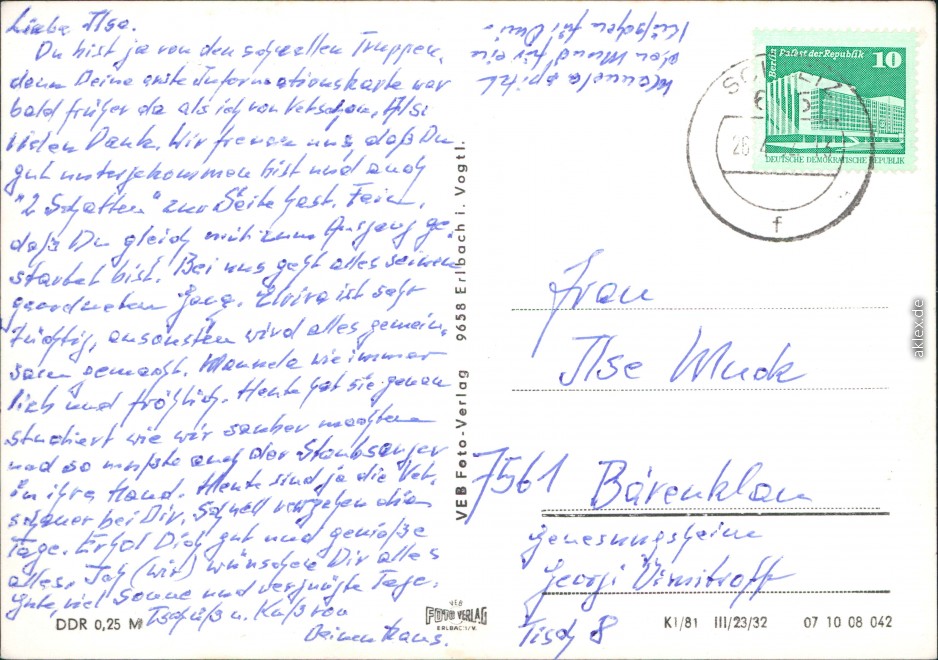 Liebe Ilse.
Du bist ja von den schnellen Truppen,
denn Deine erste Informationskarte war
bald früher da als ich von Vetschau, Also
vielen Dank. Wir freuen uns, daß Du
gut untergekommen bist und auch
"2 Schatten" zur Seite hast. Fein,
daß Du gleich mit zum Ausgang ge-
startet bist. Bei uns geht alles seinen
geordneten Gang. Elvira ist sehr
tüchtig, ansonsten wird alles gemein-
sam gemacht. Manuela wie immer
lieb und fröhlich. Heute hat sie genau
studiert wie wir sauber machten
und so mußte auch der Staubsauger
in ihre Hand. Heute sind ja die Vet-
schauer bei Dir. Schnell vergehen die
Tage. Erhol Dich gut und genieße
alles. Ich (wir) wünsche Dir alles
Gute, viel Sonne und vergnügte Tage.
Tschüß u. Kuß von
Deinem Hans.
Manuela spitzt
den Mund für ein
Küßchen für Omi
DDR 0,25 M
VEB Foto-Verlag 9658 Erlbach i. Vogtl.
VEB
FOTO VERLAG
ERLBACH/V.
Berlin Palast der Republik 10
DEUTSCHE DEMOKRATISCHE REPUBLIK
f
Frau
Ilse Muck
7561 Bärenklau
Genesungsheim
Georgi Dimitroff
Tisch 8
K1/81 III/23/32 07 10 08 042
aklex.de